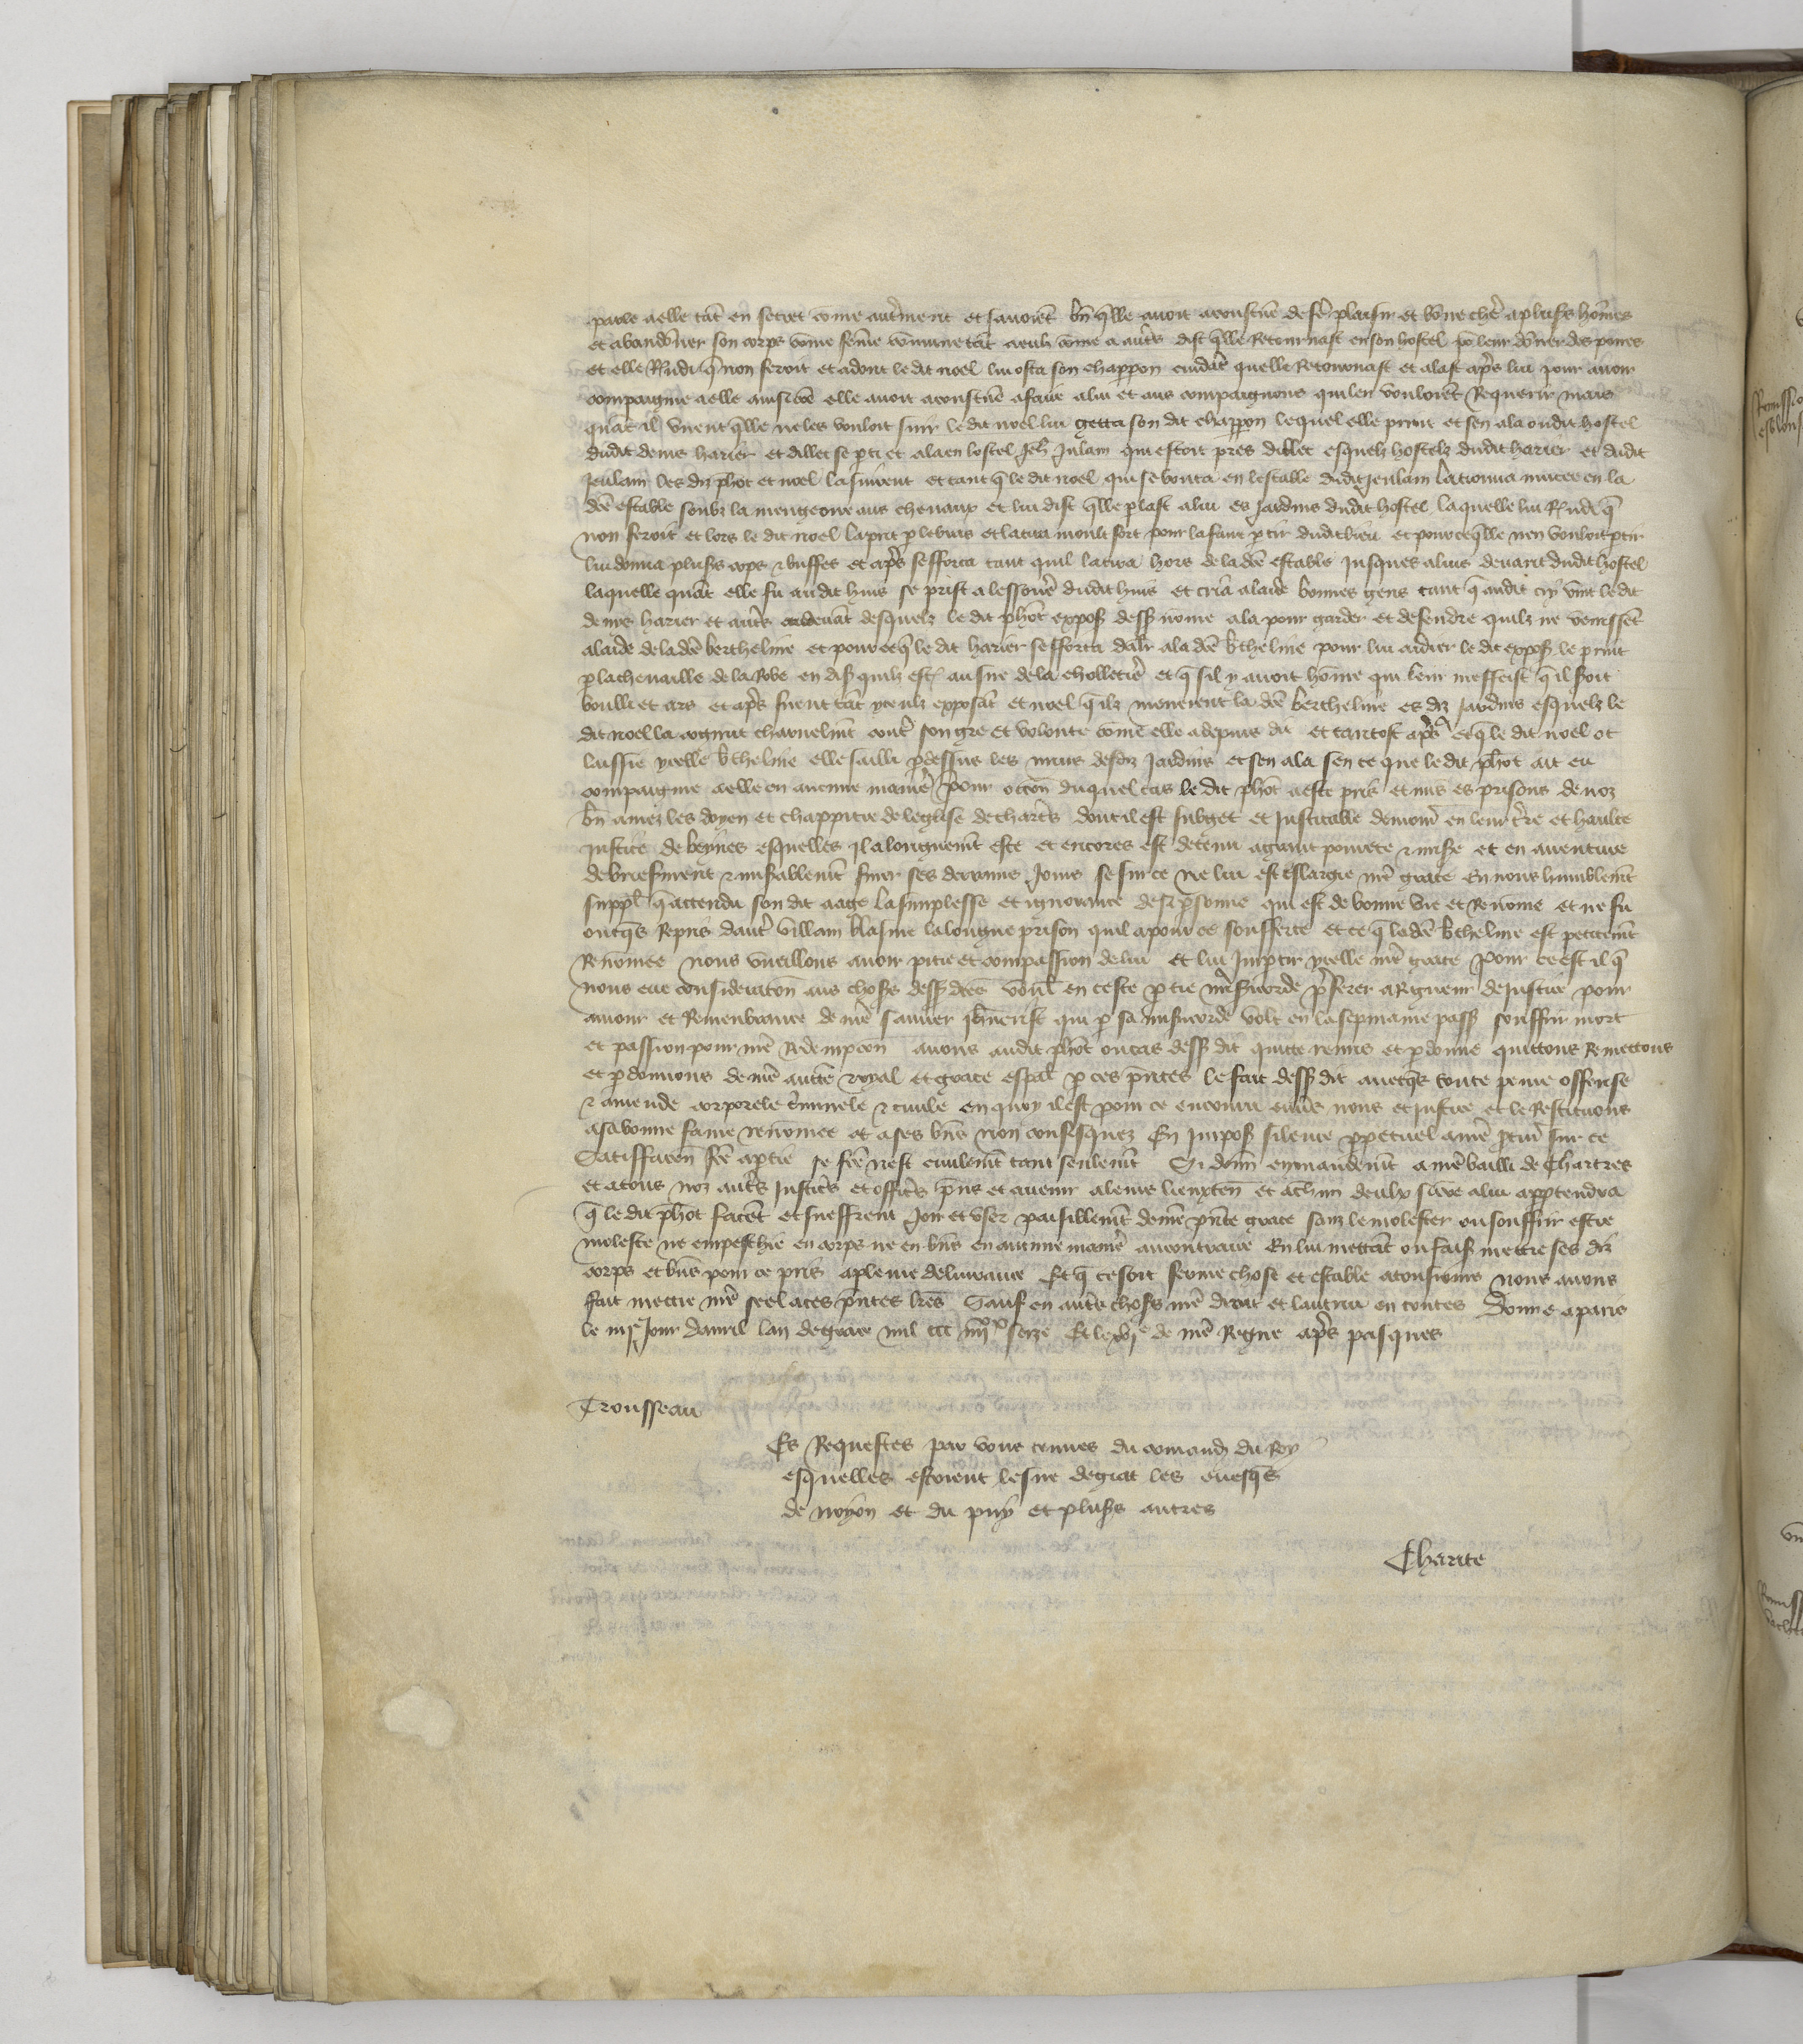 parle a elle tāt en secret cōme autremēt et savoiēt bn̄ q̄lle avoit acoustume de fē plaisir et bōne chē a plus̄s hōmes
et abandōner son corps cōme fēme cōmune tāt a eulx cōme a aut̄s dist q̄lle Retournast en son hostel po' leur dōner des poires
et elle R̄ndi q̄ non feroit et adont le dit noel lui osta son chappon cuidāt quelle Retournast et alast ap̄s lui pour avoir
compaignie a elle ainsi cōe elle avoit acoustume a faire a lui et aus compaignons qui len vouloiēt Requerir mais
quāt il virent q̄lle ne les vouloit suir le dit noel lui getta son dit chappon lequel elle print et sen ala ou dit hostel
dudit denis harier et dillec se pti et ala en lostel Jeh̄ Julain qui estoit pres dillec esquelz hostelz dudit harier et dudit
Jeulain les diz ph̄ot et noel la suirent et tant q̄ le dit noel qui se bouta en lestable dudit Jeulain la trouva mucee en la
dc̄e estable soubz la mengeoire aus chevaux et lui dist q̄lle plast a lui es Jardins dudit hostel laquelle lui R̄ndi q̄
non feroit et lors le dit noel la prit p le bras et la tira moult fort pour la faire ptir dudit lieu et pource q̄lle nen vouloit ptir
lui donna plus̄s cops & buffes et ap̄s sefforca tant quil la tira hors de la dc̄e estable Jusques a luis devant dudit hostel
laquelle quāt elle fu au dit huis se prist a lessouē dudit huis et cria a laide bonnes gens tant q̄ audit cry vint le dit
denis harier et aut̄s audevāt desquelz le dit ph̄ot expos̄ dess̄ nōme ala pour garder et defendre quilz ne venissēt
a laide de la dc̄e bertheline et pource q̄ le dit harier sefforca daler a la dc̄e b̄theline pour lui aidier le dit expos̄ le print
p la chevaille de la Robe en dis̄ quilz est au sire de la cholletiē et q̄ sil y avoit hōme qui leur meffeist q̄ il s̄oit
boulli et ars et ap̄s firent tāt yceulx exposāt et noel q̄ ilz menerent la dc̄e bertheline es diz Jardins esquelz le
dit noel la cognut charnelmt̄ cont̄ son gre et volente cōme elle a depuis dit et tantost ap̄s ce q̄ le dit noel ot
laissie ycelle b̄theline elle sailli pdessus les murs desdiz Jardins et sen ala sen ce que le dit ph̄ot ait eu
compaignie a elle en aucune maniē Pour occōn duquel cas le dit ph̄ot a este pris et mis es prisons de noz
bn̄ amez les doyen et chappitre de leglise de chartrs̄ dont il est subget et Justicable demour̄ en leur t̄re et haulte
Justice de beynes esquelles Il a longuemt̄ este et encores est detenu a grant povrete & mis̄e et en aventure
de briefment & mis̄ablemt̄ finer ses derrains Jours se sur ce ne lui est eslargie nr̄e grace En nous humblemt̄
suppl̄ q̄ attendu son dit aage la simplesse et ignorance de sa psonne qui est de bonne vie et Renōme et ne fu
oncq̄s Repris daut̄ villain blasme la longue prison quil a pour ce soufferte et ce q̄ la dc̄e b̄theline est petitemt̄
Renōmee nous vueillons avoir pitie et compassion de lui et lui Imptir ycelle nr̄e grace Pour ce est il q̄
nous eue consideracōn aus chos̄es dess̄ dc̄es voul̄ en ceste ptie mis̄icorde p̄ferer a Rigueur de Justice pour
amour et Remenbrance de nr̄e sauveur Ih̄ucrist qui p sa mis̄icorde volt en la sepmaine pass̄ souffrir mort
et passion pour nr̄e Redempcōn avons audit ph̄ot ou cas dess̄ dit quitte remis et pdonne quittons Remettons
et pdonnons de nr̄e auctē royal et grace espal̄ p ces p̄ntes le fait dess̄ dit avecq̄s toute peine offense
& amende corporele c̄minele & civile en quoy il est pour ce encouru envs̄ nous et Justice et le Restituons
a sa bonne fame renōmee et a ses bn̄s non confisquez En Impos̄ silence ppetuel a nr̄e p̄cur̄ sur ce
Satiffacōn fc̄e a ptie se fc̄e nest civilemt̄ tant seulemt̄ Si donn̄ en mandemt̄ a nr̄e bailli de Chartres
et a tous noz aut̄s Justicrs̄ et officrs̄ p̄ns et avenir a leurs lieuxten̄ et a ch̄un deulx si cōe a lui apptendra
q̄ le dit ph̄ot facēt et sueffrent Joir et user paisiblemt̄ de nr̄e p̄nte grace sanz le molester ou souffrir estre
moleste ne empeschie en corps ne en bn̄s en aucune maniē au contraire En lui mettāt ou fais̄ mettre ses diz
corps et bn̄s pour ce pris a pleine delivrance Et q̄ ce soit ferme chose et estable a tousiours nous avons
fait mettre nr̄e seel a ces p̄ntes lr̄es Sauf en aut̄s choses nr̄e droit et lautrui en toutes Donne a paris
le iiij.e Jour davril lan de grace mil ccc iiij.xx seize Et le xvj.e de nr̄e Regne ap̄s pasques
Trousseau
Es Requestes par vous tenues du comand̄ du Roy
esquelles estoient lesire degiat les evesq̄s
de noyon et du puy et plus̄s autres
Charite